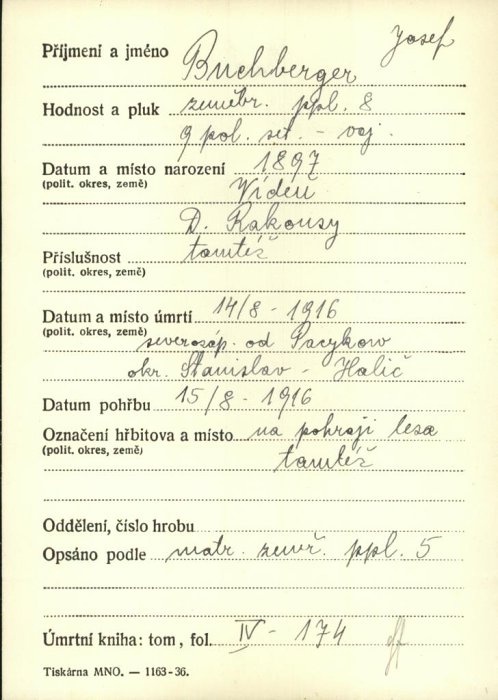 Příjmení a jméno Buchberger Josef
Hodnost a pluk zeměbr. ppl. 8
9 pol. set. - voj.
Datum a místo narození 1897
(polit. okres, země) Vídeň
D. Rakousy
Příslušnost tamtéž
(polit. okres, země)
Datum a místo úmrtí 14/8 - 1916
(polit. okres, země) severozáp. od Pacykow
okr. Stanislav - Halič
Datum pohřbu 15/8 - 1916
Označení hřbitova a místo na pokraji lesa
(polit. okres, země) tamtéž
Oddělení, číslo hrobu
Opsáno podle matr. zemř. ppl. 5
Úmrtní kniha: tom, fol. IV - 174
Tiskárna MNO. — 1163-36.